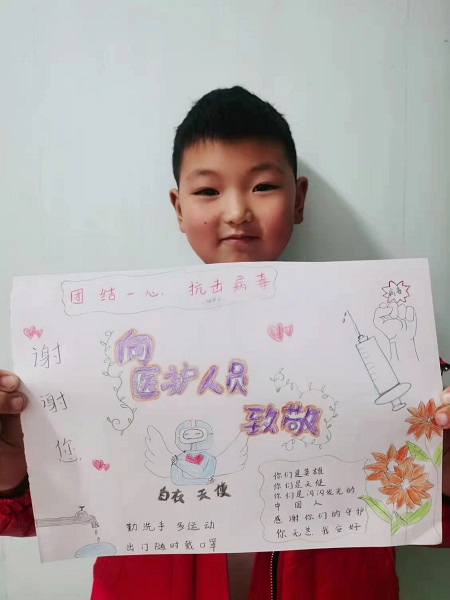 团结一心 抗击病毒
病毒
谢谢您
向
医护人员
致敬
白衣天使
你们是英雄
你们是天使
你们是闪闪发光的
中国人
感谢你们的守护
你无恙 我安好
勤洗手 多运动
出门随时戴口罩